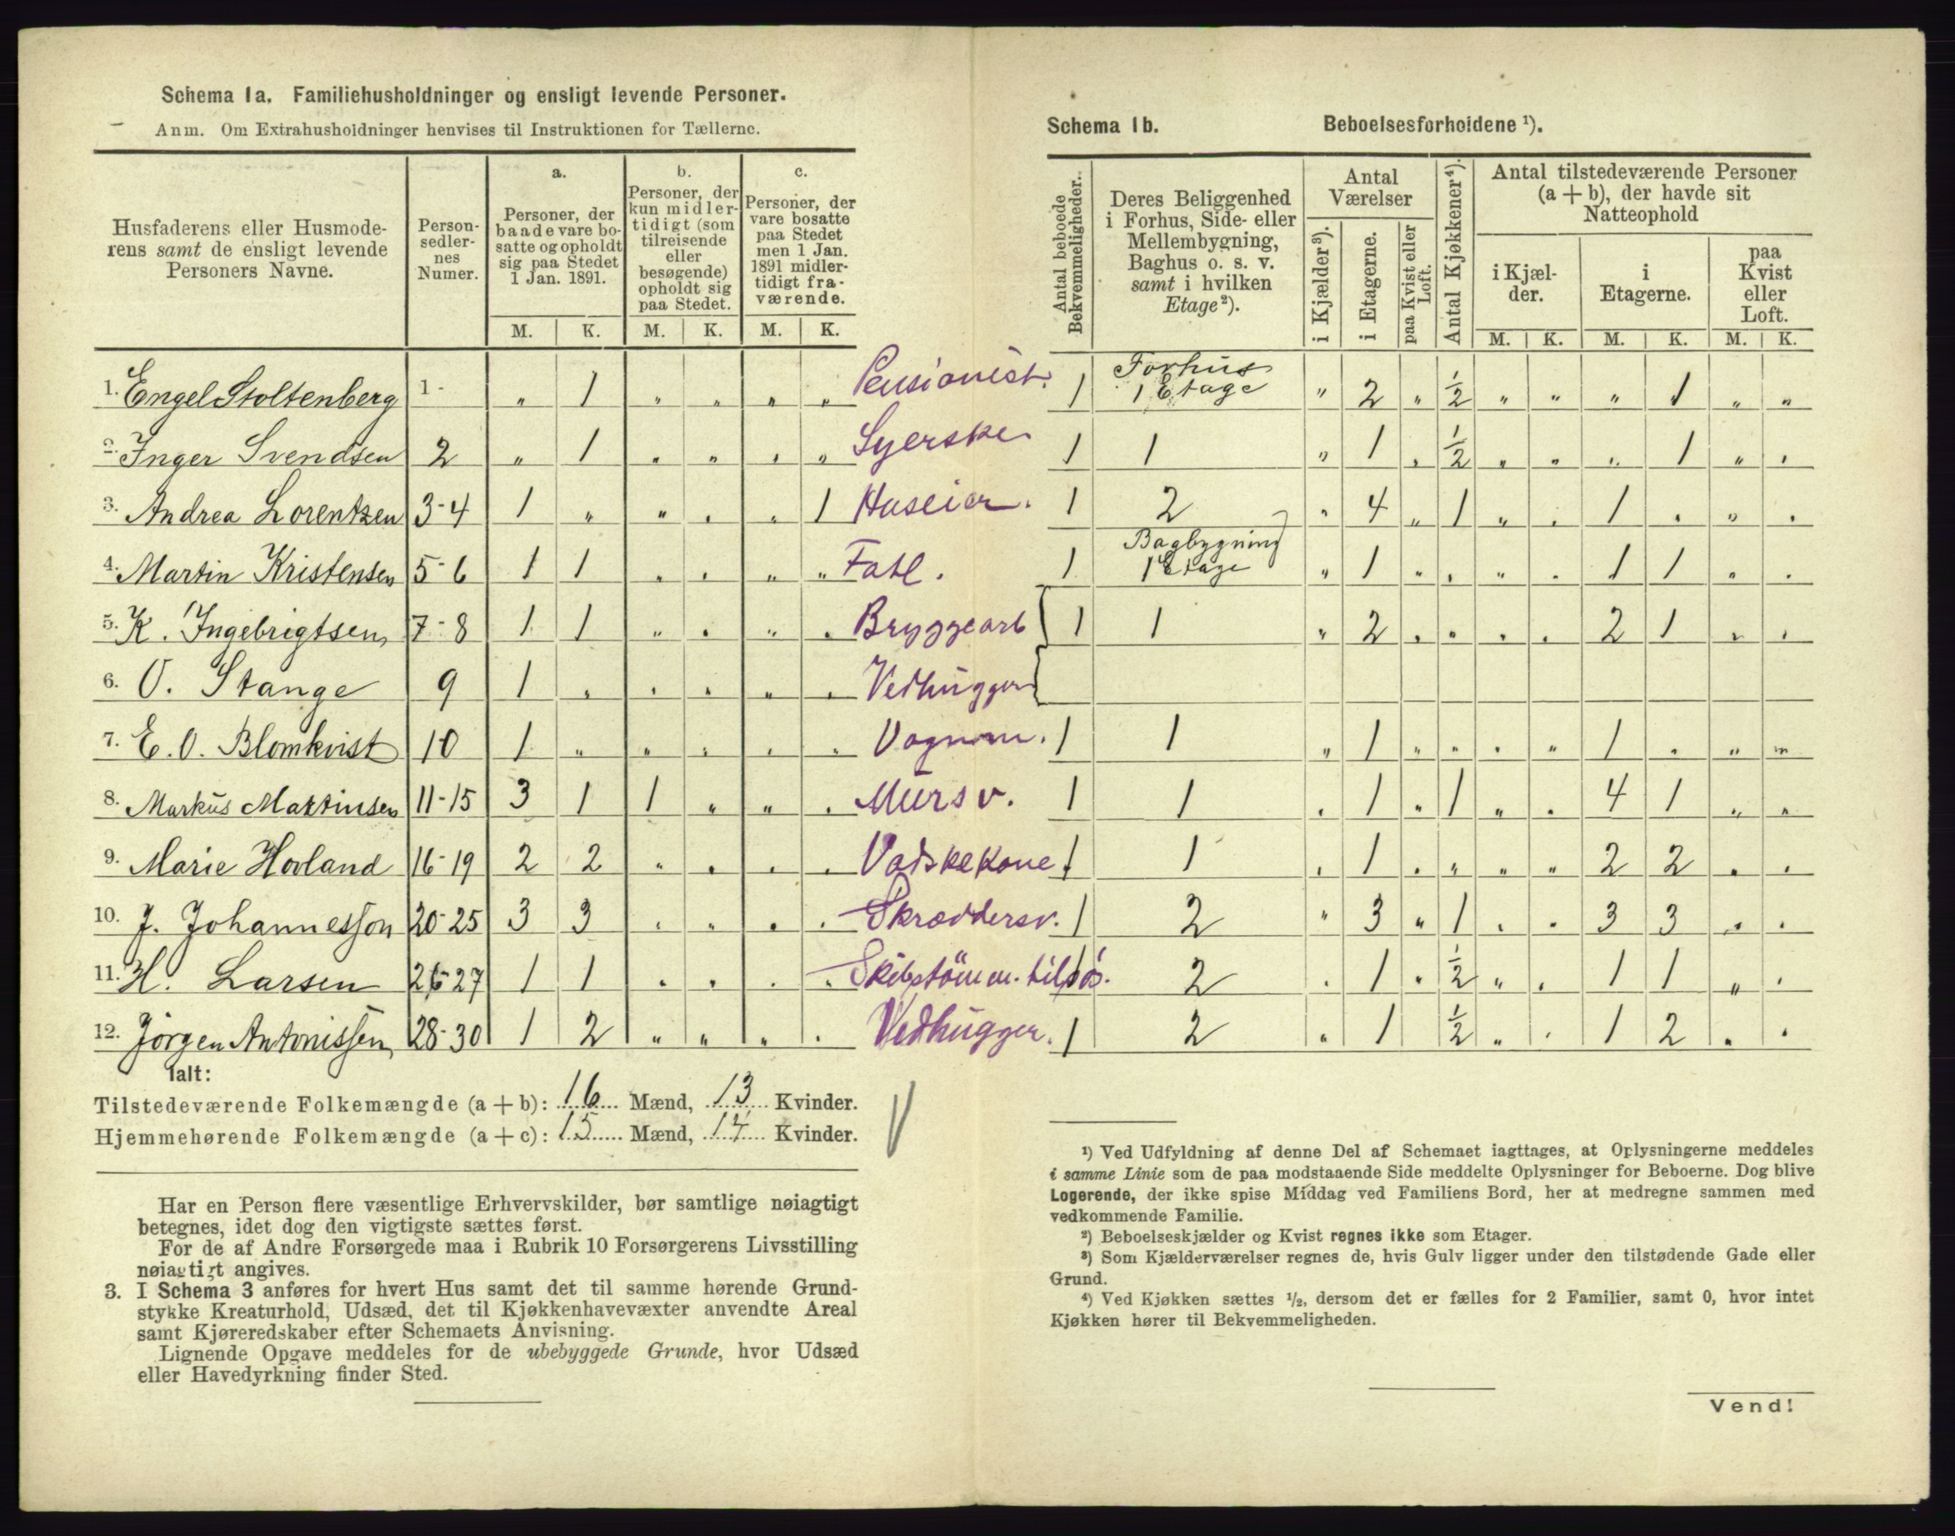 Schema 1a. Familiehusholdninger og ensligt levende Personer.
Anm. Om Extrahusholdninger henvises til Instruktionen for Tællerne.
Husfaderens eller Husmoderens samt de ensligt levende Personers Navne.
Person-sedler-nes Numer.
a. Personer, der baade vare bosatte og opholdt sig paa Stedet 1 Jan. 1891.
b. Personer, der kun midlertidigt (som tilreisende eller besøgende) opholdt sig paa Stedet.
c. Personer, der vare bosatte paa Stedet men 1 Jan. 1891 midlertidigt fraværende.
M. K. M. K. M. K.
1. Engel Stoltenberg 1 - „ 1 „ „ „ „ Pensionist.
2. Inger Svendsen 2 „ 1 „ „ . „ Syerske
3. Andrea Lorentzen 3-4 1 „ „ . „ 1 Huseier.
4. Martin Kristensen 5-6 1 1 „ . „ „ Fatl.
5. K. Ingebrigtsen 7-8 1 1 „ . „ . Bryggearb
6. O. Stange 9 1 „ . . „ . Vedhugger
7. E. O. Blomkvist 10 1 „ „ . . „ Vognm.
8. Markus Martinsen 11-15 3 1 1 „ „ . Mursv.
9. Marie Hovland 16-19 2 2 „ . . . Vaskekone
10. J. Johannessen 20-25 3 3 . „ . . Skræddersv.
11. H. Larsen 26-27 1 1 . . . . Skibstømm. tilsøs.
12. Jørgen Antonissen 28-30 1 2 „ „ „ . Vedhugger.
Ialt:
Tilstedeværende Folkemængde (a + b): 16 Mænd, 13 Kvinder.
Hjemmehørende Folkemængde (a + c): 15 Mænd, 14 Kvinder.
Har en Person flere væsentlige Erhvervskilder, bør samtlige nøiagtigt
betegnes, idet dog den vigtigste sættes først.
For de af Andre Forsørgede maa i Rubrik 10 Forsørgerens Livsstilling
nøiagtigt angives.
3. I Schema 3 anføres for hvert Hus samt det til samme hørende Grund-
stykke Kreaturhold, Udsæd, det til Kjøkkenhavevæxter anvendte Areal
samt Kjøreredskaber efter Schemaets Anvisning.
Lignende Opgave meddeles for de ubebyggede Grunde, hvor Udsæd
eller Havedyrkning finder Sted.
Schema 1b. Beboelsesforholdene ¹).
Antal beboede Bekvemmeligheder.
Deres Beliggenhed i Forhus, Side- eller Mellembygning, Baghus o. s. v. samt i hvilken Etage²).
Antal Værelser
i Kjælder³).
i Etagerne.
paa Kvist eller Loft.
Antal Kjøkkener⁴).
Antal tilstedeværende Personer (a + b), der havde sit Natteophold
i Kjælder.
i Etagerne.
paa Kvist eller Loft.
M. K. M. K. M. K.
1 Forhus 1 Etage „ 2 „ ½ „ „ „ 1 „ „
1 1 „ 1 . ½ „ „ „ 1 „ .
1 2 „ 4 „ 1 „ . 1 . „ .
1 Bagbygning 1 Etage „ 1 „ . „ . 1 1 „ .
1 1 „ 2 . „ . . 2 1 „ .
1 1 „ 1 „ „ . „ 1 . „ „
1 1 . 1 „ 1 „ . 4 1 „ „
1 1 . 1 . „ „ „ 2 2 . .
1 2 „ 3 „ 1 . . 3 3 . .
1 2 . 1 . ½ „ . 1 1 „ .
1 2 „ 1 ½ „ . 1 2 . .
¹) Ved Udfyldning af denne Del af Schemaet iagttages, at Oplysningerne meddeles
i samme Linie som de paa modstaaende Side meddelte Oplysninger for Beboerne. Dog blive
Logerende, der ikke spise Middag ved Familiens Bord, her at medregne sammen med
vedkommende Familie.
²) Beboelseskjælder og Kvist regnes ikke som Etager.
³) Som Kjælderværelser regnes de, hvis Gulv ligger under den tilstødende Gade eller
Grund.
⁴) Ved Kjøkken sættes ½, dersom det er fælles for 2 Familier, samt 0, hvor intet
Kjøkken hører til Bekvemmeligheden.
Vend!